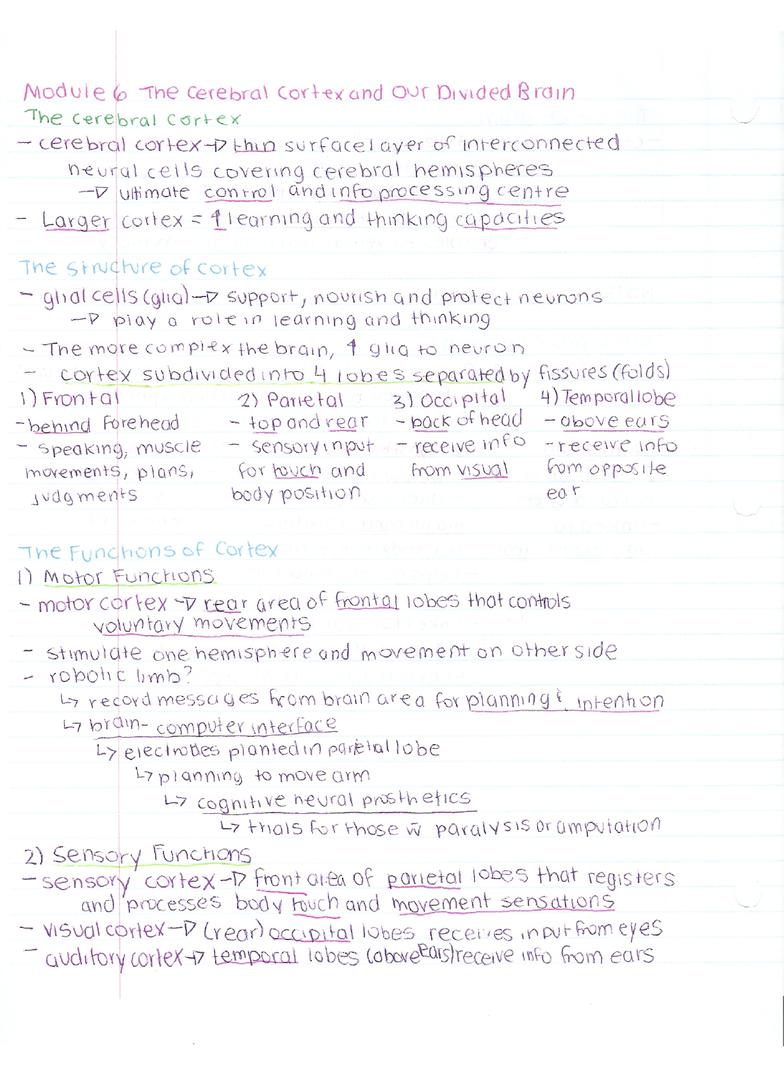 Module 6 The Cerebral Cortex and Our Divided Brain
The Cerebral Cortex
- cerebral cortex → thin surface layer of interconnected
neural cells covering cerebral hemispheres
→ ultimate control and info processing centre
- Larger cortex = ↑ learning and thinking capacities
The Structure of Cortex
- glial cells (glia) → support, nourish and protect neurons
→ play a role in learning and thinking
- The more complex the brain, ↑ glia to neuron
- cortex subdivided into 4 lobes separated by fissures (folds)
1) Frontal
- behind forehead
- speaking, muscle
movements, plans,
judgments
2) Parietal
- top and rear
- sensory input
for touch and
body position
3) Occipital
- back of head
- receive info
from visual
4) Temporal lobe
- above ears
- receive info
from opposite
ear
The Functions of Cortex
1) Motor Functions
- motor cortex → rear area of frontal lobes that controls
voluntary movements
- stimulate one hemisphere and movement on other side
- robotic limb?
↳ record messages from brain area for planning & intention
↳ brain-computer interface
↳ electrodes planted in parietal lobe
↳ planning to move arm
↳ cognitive neural prosthetics
↳ trials for those w̄ paralysis or amputation
2) Sensory Functions
- sensory cortex → front area of parietal lobes that registers
and processes body touch and movement sensations
- visual cortex → (rear) occipital lobes receives input from eyes
- auditory cortex → temporal lobes (above ears) receive info from ears